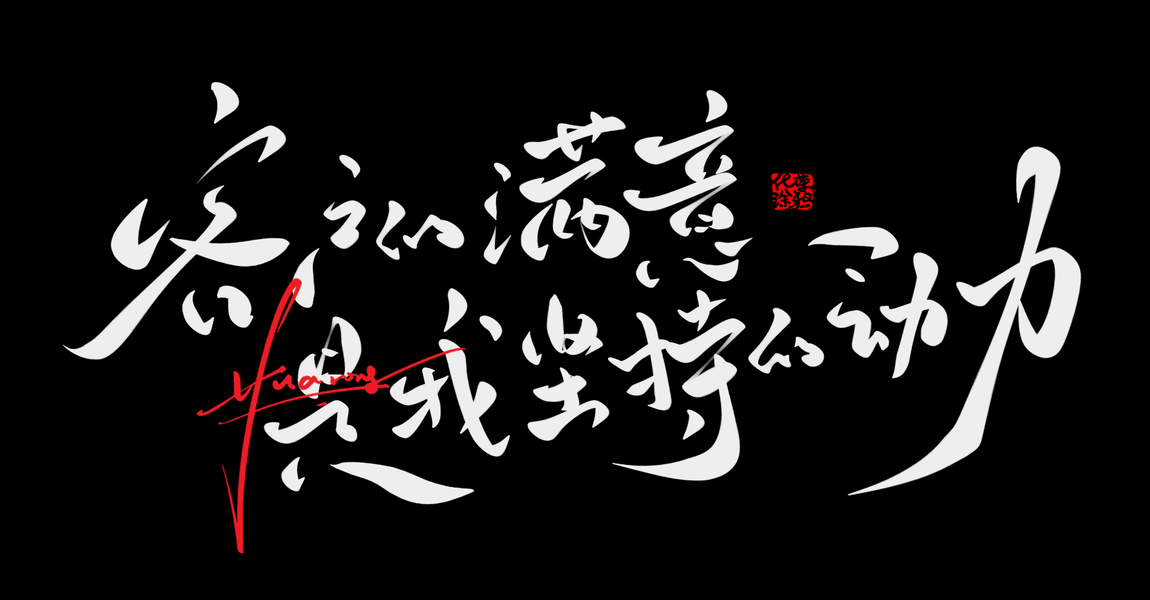 客户的满意
是我坚持的动力